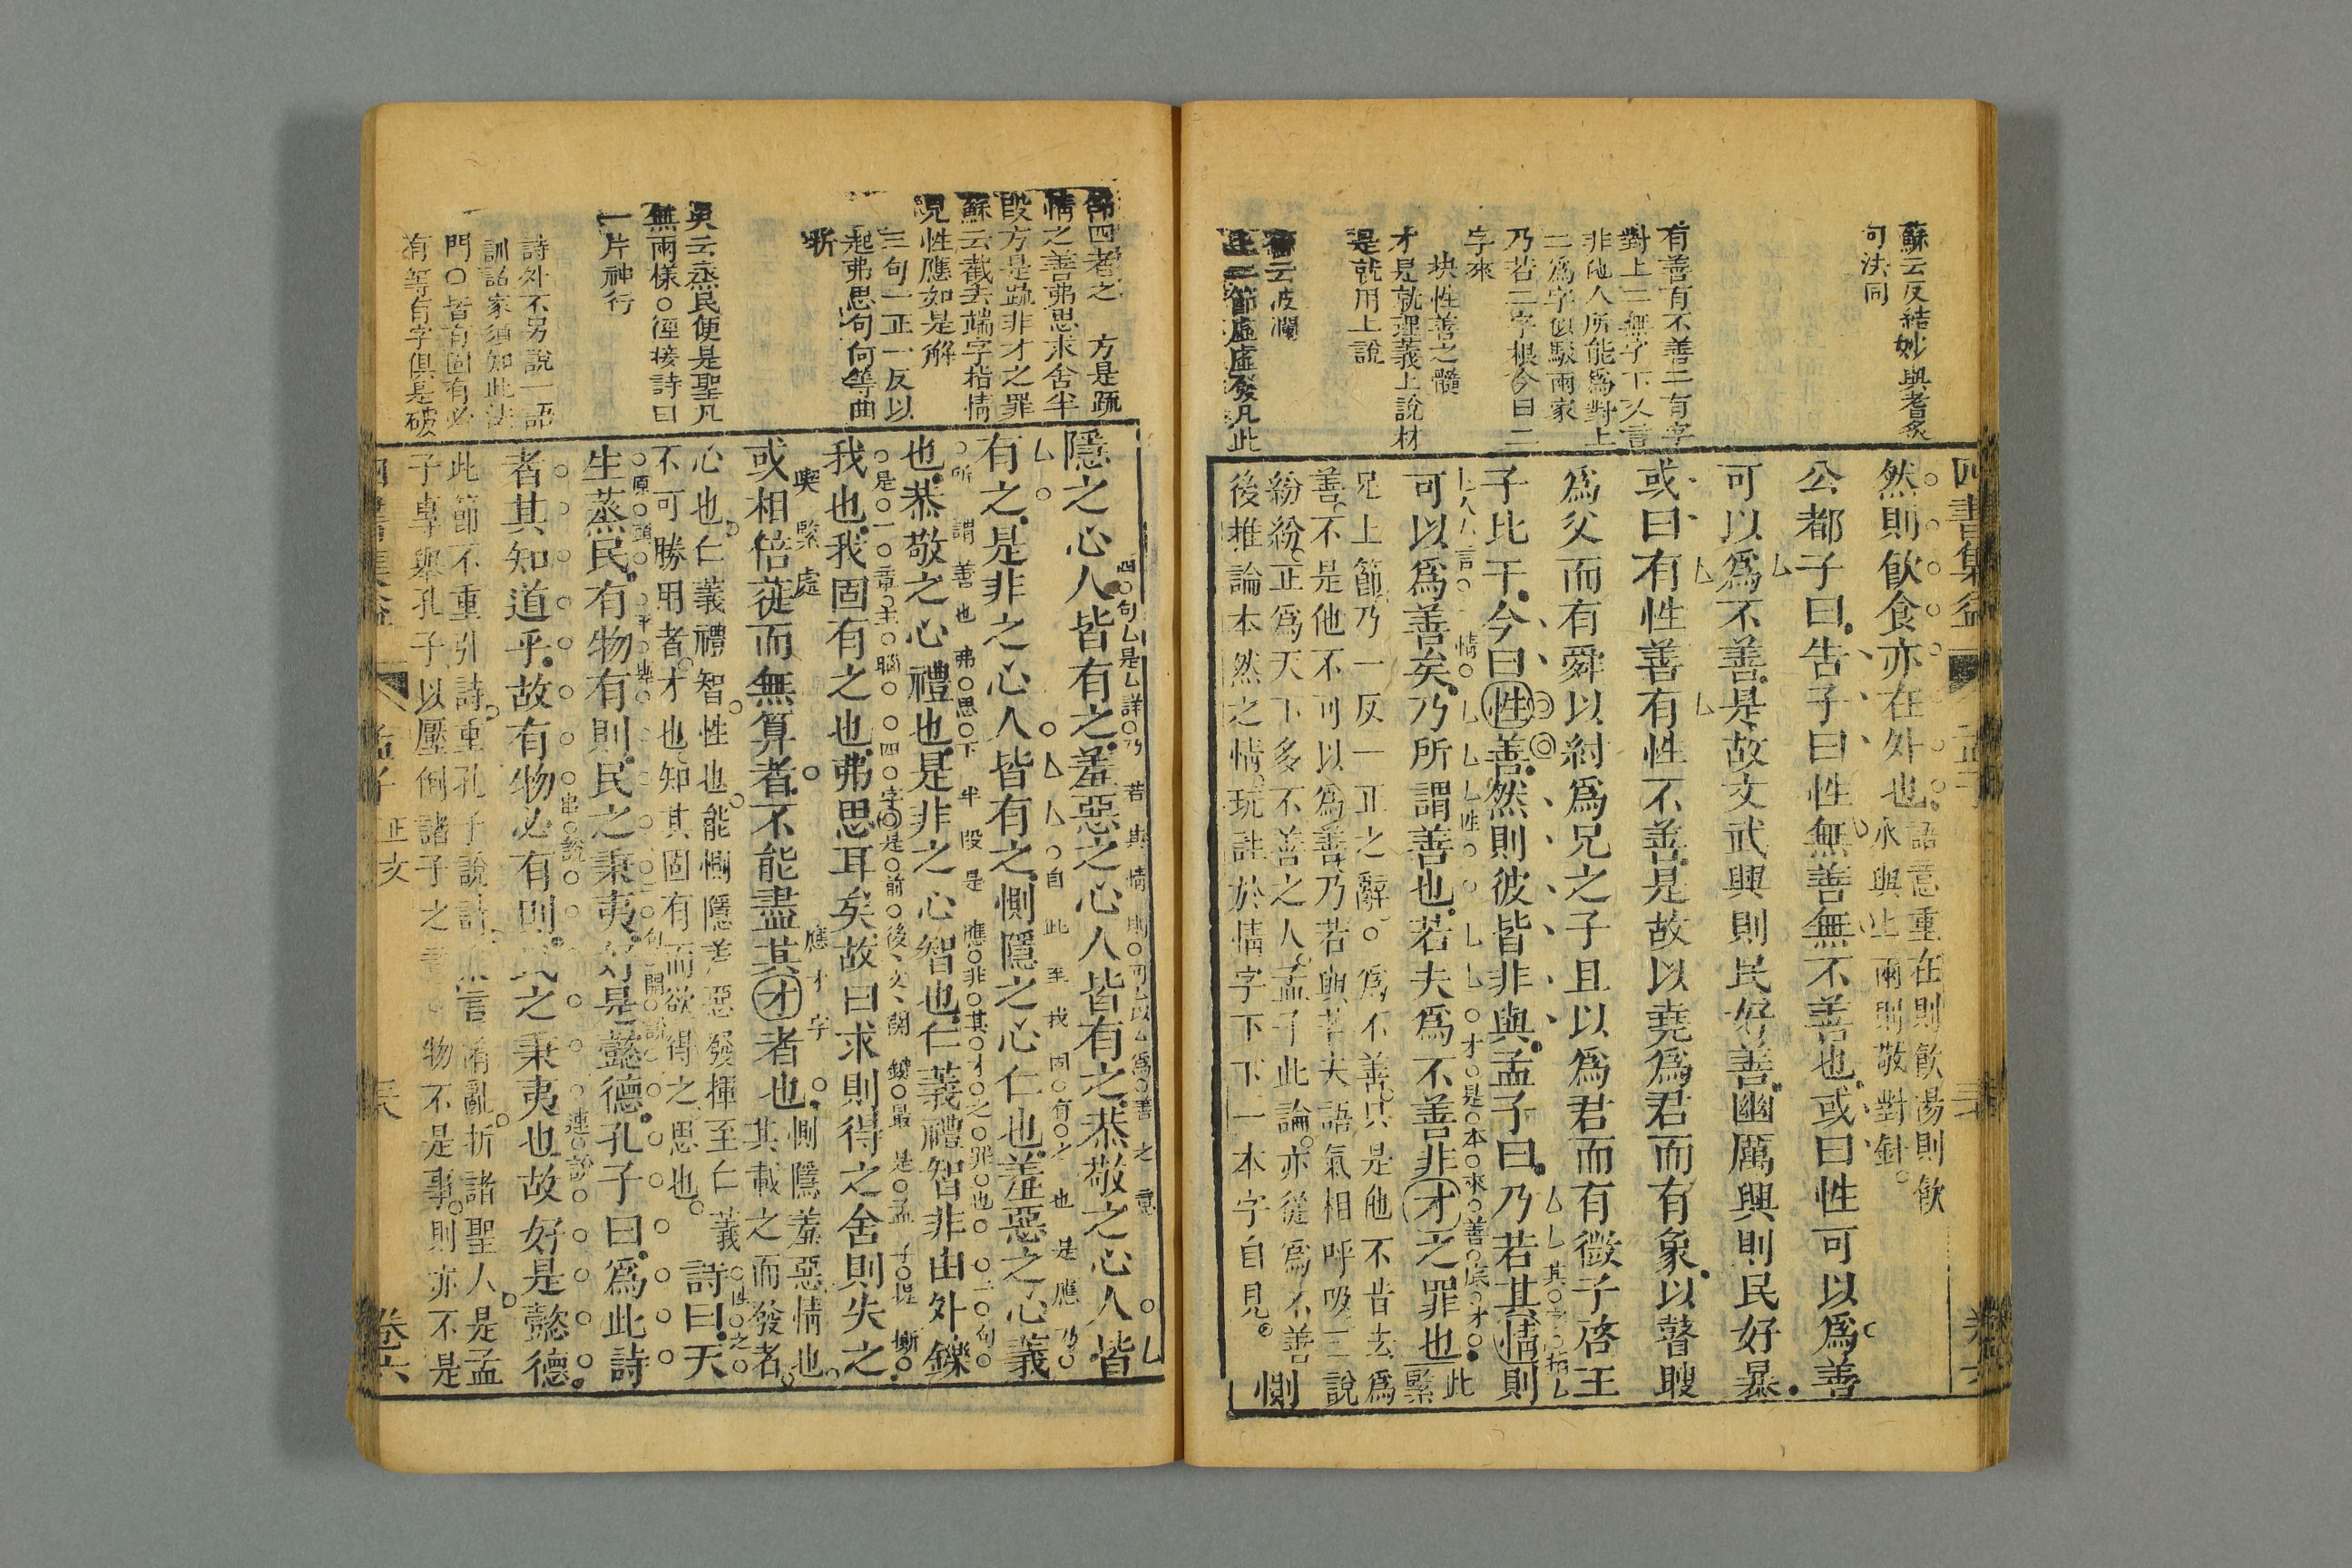 蘇云反結妙與耆炙
句法同
有善有不善二有字
對上二無字下又言
非他人所能爲對上
二爲字似駁兩家
乃若二字根今日二
字來
抉性善之髓
才是就理義上說材
是就用上說
云波瀾
節虛虛發凡此
四書集益
孟子
然則飮食亦在外也
語意重在則飮湯則飮
水與上兩則敬對針
公都子曰告子曰性無善無不善也或曰性可以爲善
可以爲不善是故文武興則民好善幽厲興則民好暴
或曰有性善有性不善是故以堯爲君而有象以瞽瞍
爲父而有舜以紂爲兄之子且以爲君而有微子啓王
子比干今曰性善然則彼皆非與孟子曰乃若其情則
可以爲善矣乃所謂善也若夫爲不善非才之罪也
此
緊
兄上節乃一反一正之辭爲不善只是他不肯去爲
善不是他不可以爲善乃若與若夫語氣相呼吸三說
紛紛正爲天下多不善之人孟子此論亦從爲不善
後推論本然之情玩註於情字下下一本字自見
惻
節四者之 方是疏
情之善弗思求舍半
段方是疏非才之罪
蘇云截去端字指情
見性應如是解
三句一正一反以
起弗思句何等曲
折
吳云烝民便是聖凡
無兩樣徑接詩曰
一片神行
詩外不另說一語
訓詁家須知此法
門皆有固有必
有等有字俱是破
四句是詳乃若其情則可以爲善之意
隱之心人皆有之羞惡之心人皆有之恭敬之心人皆
自此至我固有之也是應乃
有之是非之心人皆有之惻隱之心仁也羞惡之心義
所謂善也弗思下半段是應非其才之罪也一句
也恭敬之心禮也是非之心智也仁義禮智非由外鑠
是一章主腦四字是前後關鍵最是孟子提撕
我也我固有之也弗思耳矣故曰求則得之舍則失之
喫緊處
應才字
或相倍蓰而無算者不能盡其才者也
惻隱羞惡情也
其載之而發者
心也仁義禮智性也能惻隱羞惡發揮至仁義
不可勝用者才也知其固有而欲得之思也
詩曰天
生蒸民有物有則民之秉夷好是懿德孔子曰爲此詩
串說
連說
者其知道乎故有物必有則民之秉夷也故好是懿德
此節不重引詩重孔子說詩 言淆亂折諸聖人是孟
子專舉孔子以壓倒諸子之 物不是事則亦不是
四書集益
孟子
正文
卷六